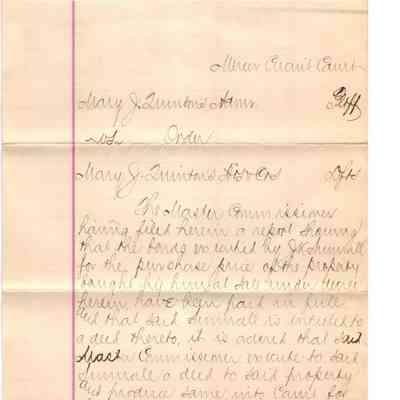 Mercer Circuit Court
Mary J. Quinton's Admr Plff
vs Order
Mary J. Quinton's Hrs & Crs Dfts
The Master Commissioner
having filed herein a report showing
that the bonds executed by J.K. Sumrall
for the purchase price of the property
bought by him at sale under decree
herein, have been paid in full
and that said Sumrall is entitled to
a deed thereto, it is adjd that said
Master Commissioner execute to said
Sumrall a deed to said property
and produce same into Court for